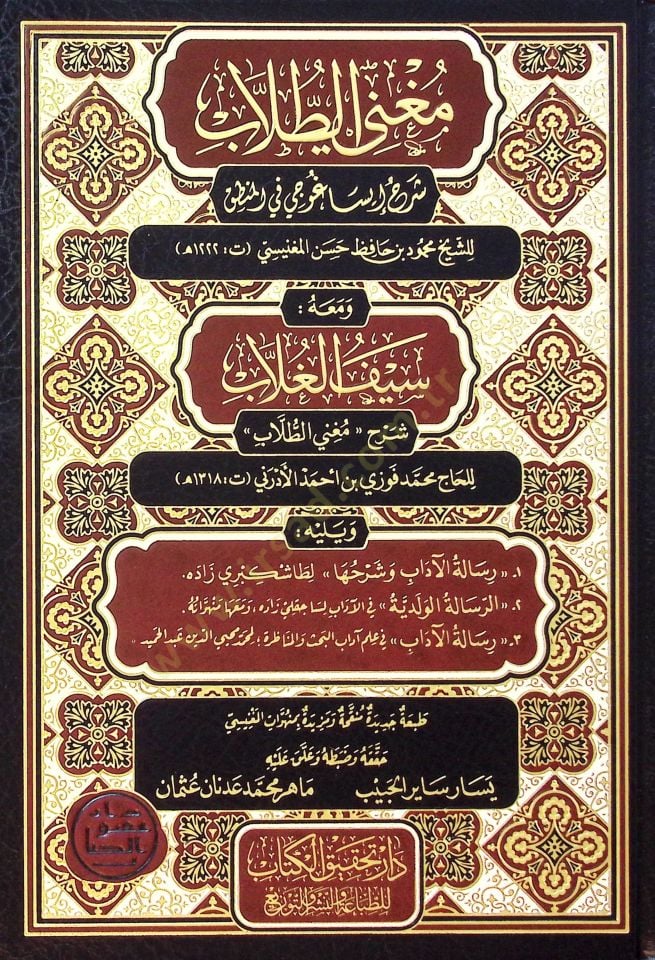 مُغْنِي الطُّلَّابِ
شَرْحُ إِيسَاغُوجِي فِي المَنْطِقِ
لِلشَّيْخِ مَحْمُود بْن حَافِظ حَسَن المَغْنِيسِي (ت: ١٢٢٢هـ)
وَمَعَهُ:
سَيْفُ الغُلَّابِ
شَرْحُ «مُغْنِي الطُّلَّابِ»
لِلحَاجِ مُحَمَّد فَوْزِي بْن أَحْمَدَ الأَدْرَنِي (ت: ١٣١٨هـ)
وَيَلِيْهِ:
١ـ «رِسَالَةُ الآدَابِ وَشَرْحُهَا» لِطَاشْكُبْرِي زَادَه.
٢ـ «الرِّسَالَةُ الوَلَدِيَّةُ» فِي الآدَابِ لِسَاجَقْلِي زَادَه، وَمَعَهَا مَنْهُوَاتُهُ.
٣ـ «رِسَالَةُ الآدَابِ» فِي عِلْمِ آدَابِ البَحْثِ وَالمُنَاظَرَةِ؛ لِمُحَمَّد مُحْيِي الدِّيْن عَبْد الحَمِيد
طَبْعَةٌ جَدِيدَةٌ مُنَقَّحَةٌ وَمَزِيدَةٌ بِمَنْهُوَاتِ المَغْنِيسِي
حَقَّقَهُ وَضَبَطَهُ وَعَلَّقَ عَلَيْهِ
يَسَار سَايِر الحَبِيْب مَاهِر مُحَمَّد عَدْنَان عُثْمَان
دَار تَحْقِيق الكِتَاب
لِلطِّبَاعَةِ وَالنَّشْرِ وَالتَّوْزِيع